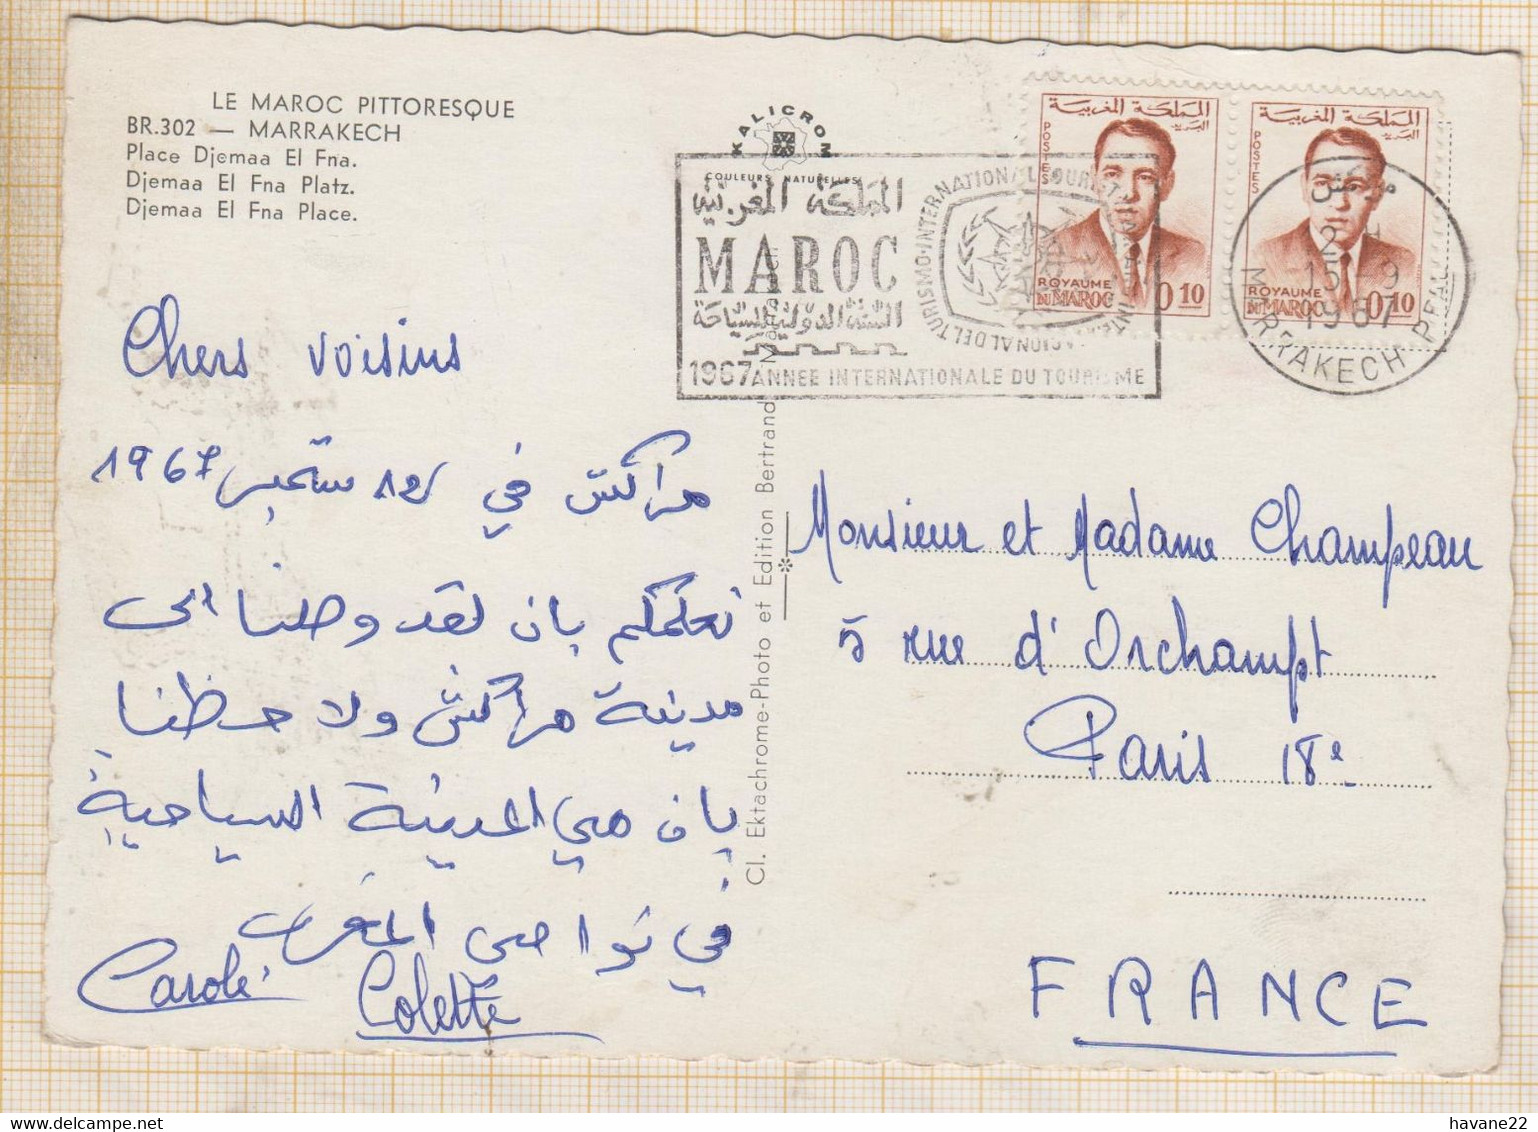 LE MAROC PITTORESQUE
BR.302 — MARRAKECH
Place Djemaa El Fna.
Djemaa El Fna Platz.
Djemaa El Fna Place.
KALICROM
COULEURS NATURELLES
المملكة المغربية
MAROC
السنة الدولية للسياحة
1967 ANNEE INTERNATIONALE DU TOURISME
المملكة المغربية
البريد
POSTES
ROYAUME
DU MAROC
0,10
المملكة المغربية
البريد
POSTES
ROYAUME
DU MAROC
0,10
مراكش
15 9
1967
MARRAKECH PPAL
Chers voisins
مراكش في 12 ستمبر 1967
نعلمكم بان لقد وصلنا الى
مدينة مراكش ولاحظنا
بان هي المدينة السياحية
في نواحي المغرب
Carole
Colette
Cl. Ektachrome-Photo et Edition Bertrand
Monsieur et Madame Champeau
5 rue d'Orchampt
Paris 18e
FRANCE
havane22